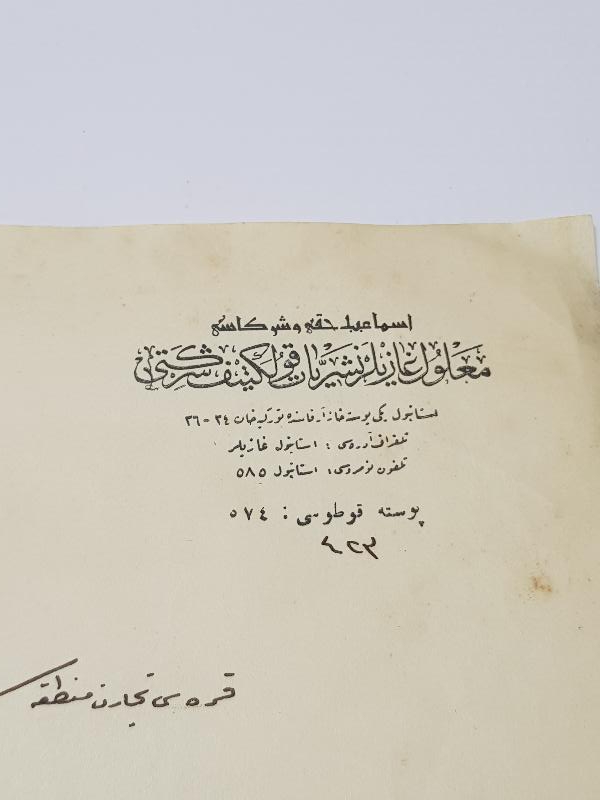 اسماعیل حقی و شرکاسی
معلول غازیلر نشریات قوللکتیف شرکتی
استانبول یکی پوسته خانه آرقاسنده تورکیه خان ٣٤ - ٣٦
تلغراف آدره سی : استانبول غازیلر
تلفون نومروسی: استانبول ٥٨٥
پوسته قوطوسی: ٥٧٤
٤٢٣
قره سی تجارت منطقه